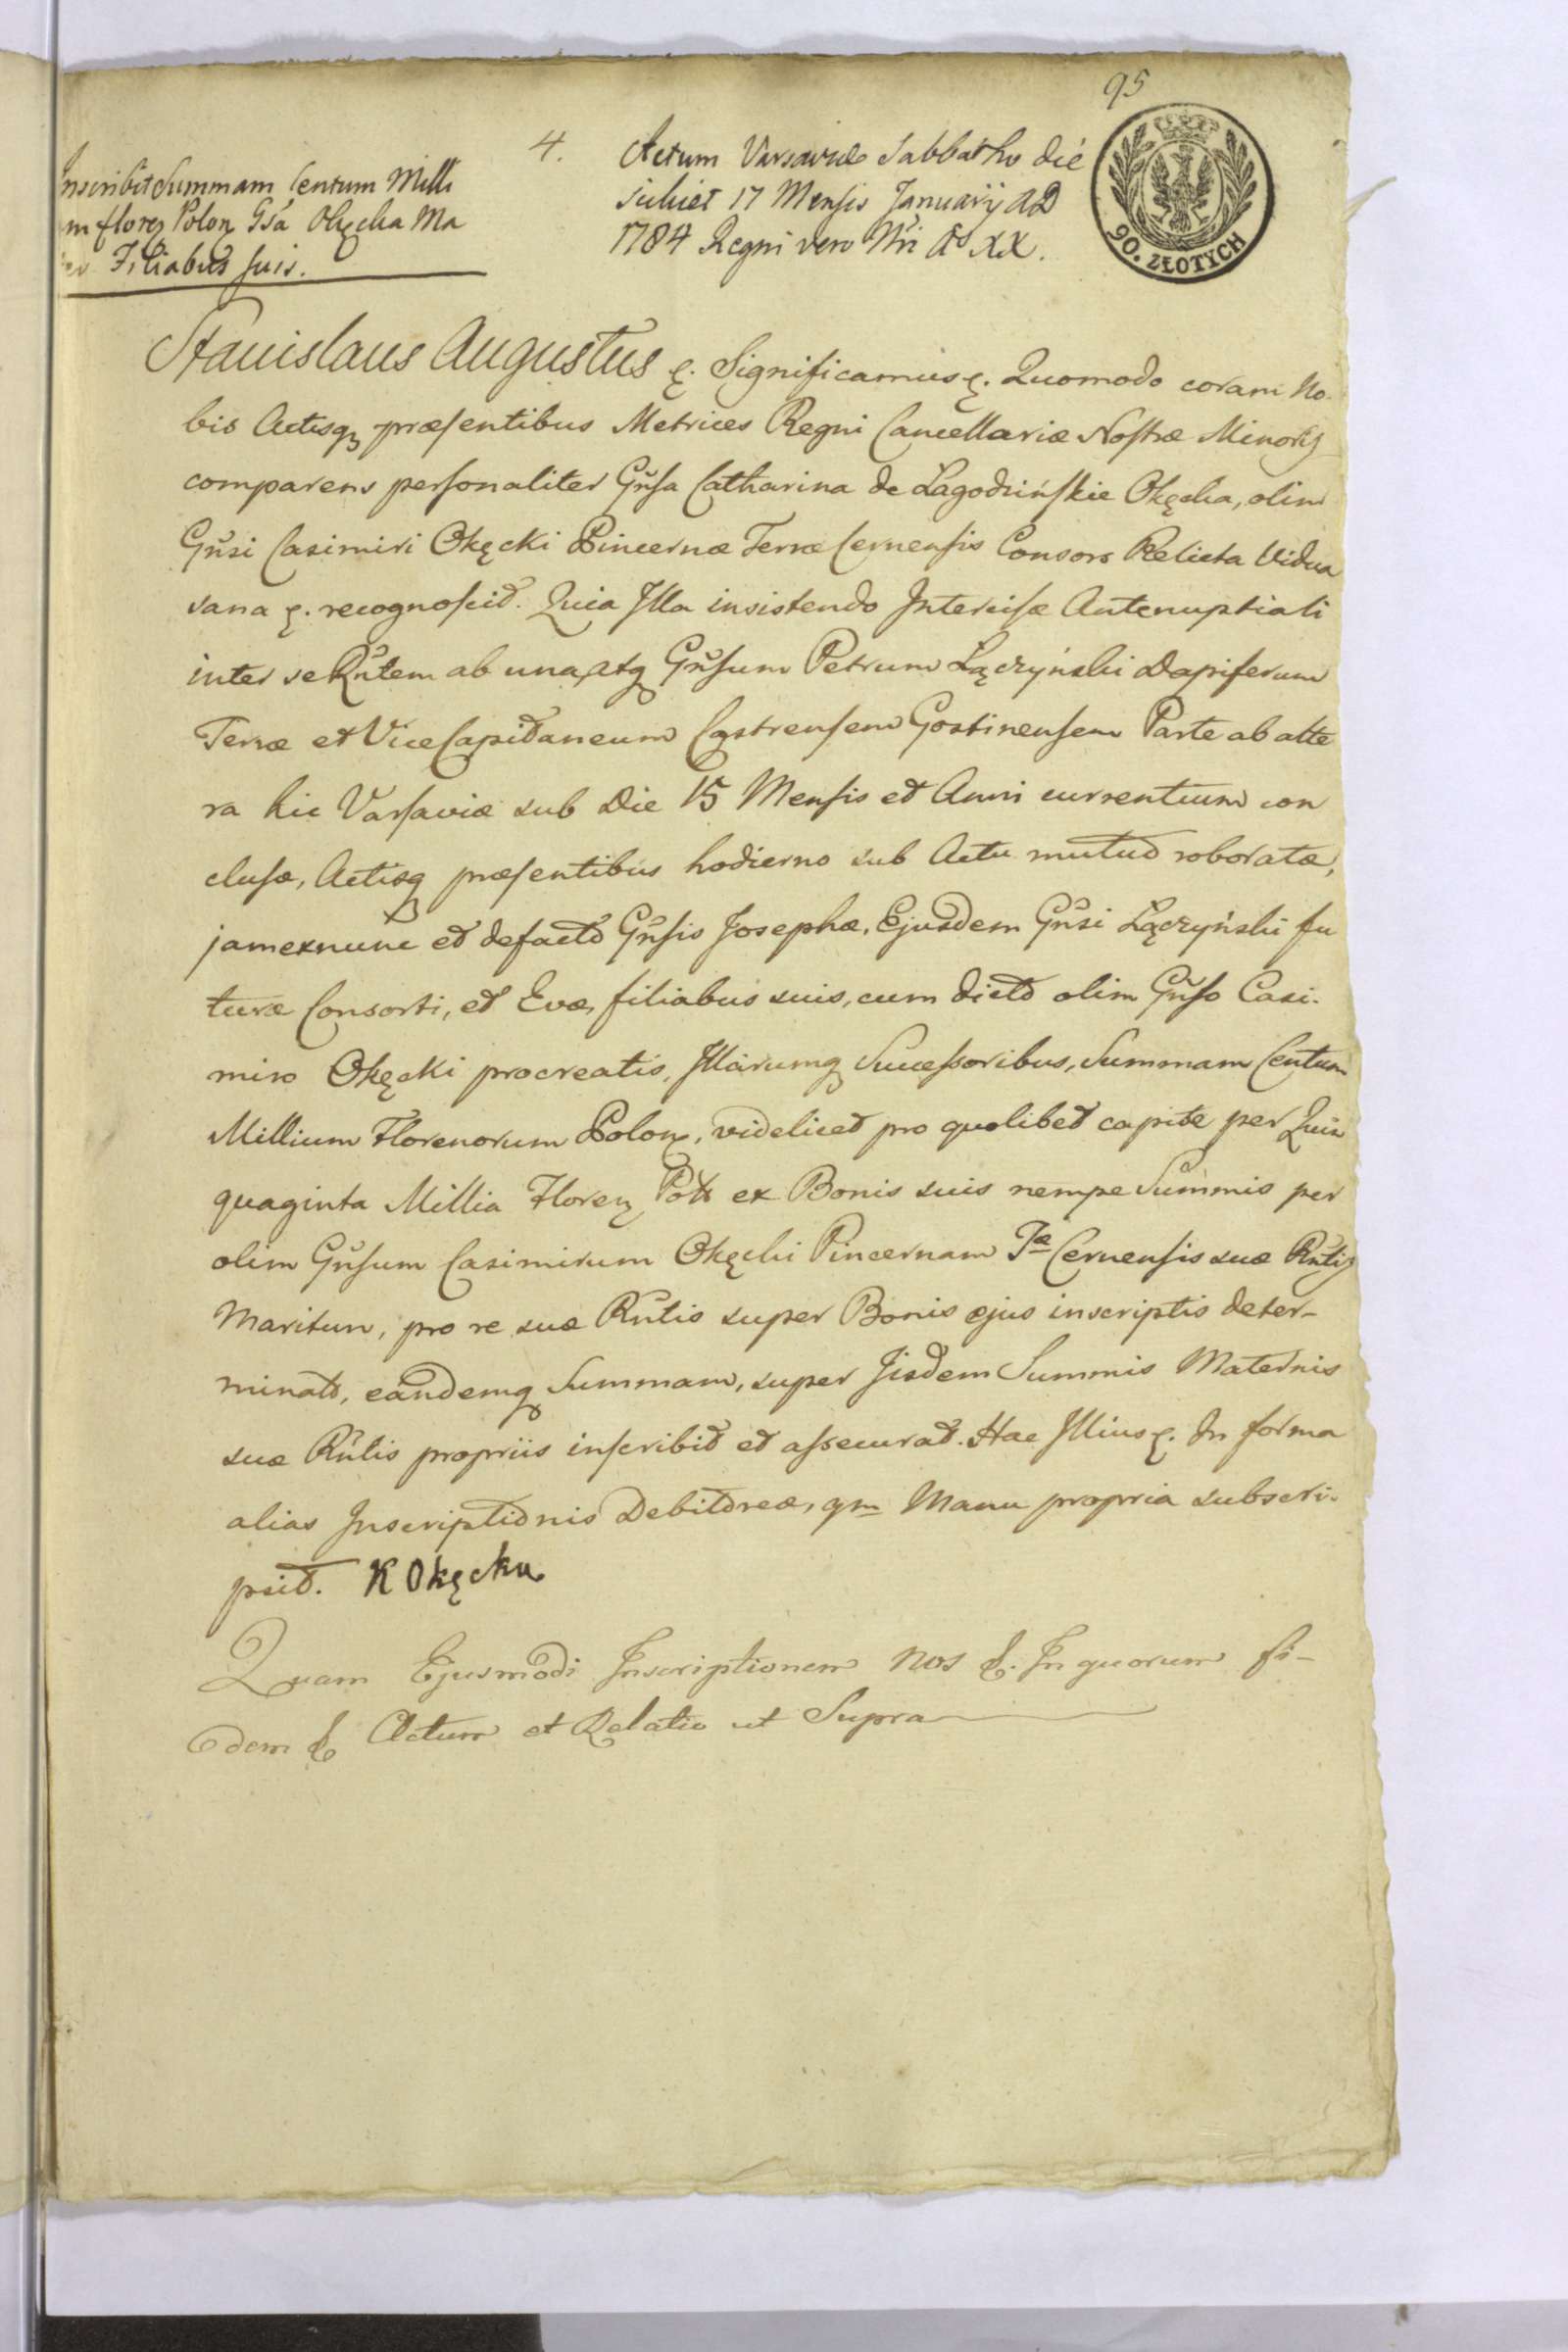 95
4.
Inscribit Summam Centum Milli
m florez Polon Gsa Okęcka Ma
Filiabus suis.
Actum Varsaviæ Sabbatho die
scilicet 17 Mensis Januarij AD
1784 Regni vero Nri Ao XX.
90. ZŁOTYCH
Stanislaus Augustus &. Significamus &. Quomodo coram No-
bis Actisq præsentibus Metrices Regni Cancellariæ Nostræ Minoris
comparens personaliter Gnsa Catharina de Łagodzińskie Okęcka, olim
Gnsi Casimiri Okęcki Pincernæ Terræ Cernensis Consors Relicta Vidua
sana &. recognoscit. Quia Illa insistendo Intercisæ Antenuptiali
inter se Rntem ab una, atq Gnsum Petrum Łączyński Dapiferum
Terræ et ViceCapitaneum Castrensem Gostinensem Parte ab alte
ra hic Varsaviæ sub Die 15 Mensis et Anni currentium con
clusæ, Actisq præsentibus hodierno sub Actu mutuo roboratæ,
jamexnunc et defacto Gnsis Josephæ, Ejusdem Gnsi Łączyński fu
turæ Consorti, et Evæ, filiabus suis, cum dicto olim Gnso Casi-
miro Okęcki procreatis, Illarumq Successoribus, Summam Centum
Millium Florenorum Polon, videlicet pro quolibet capite per Quin
quaginta Millia Floren Poll ex Bonis suis nempe Summis per
olim Gnsum Casimirum Okęcki Pincernam Tæ Cernensis suæ Rntis
Maritum, pro re suæ Rntis super Bonis ejus inscriptis deter-
minat, eandemq Summam, super Iisdem Summis Maternis
suæ Rntis propriis inscribit et assecurat. Hac Illius &. In forma
alias Inscriptionis Debitoreæ, qm Manu propria subscri-
psit. K Okęcka
Quam Ejusmodi Inscriptionem Nos &. In quorum fi-
dem & Actum et Relatio ut Supra